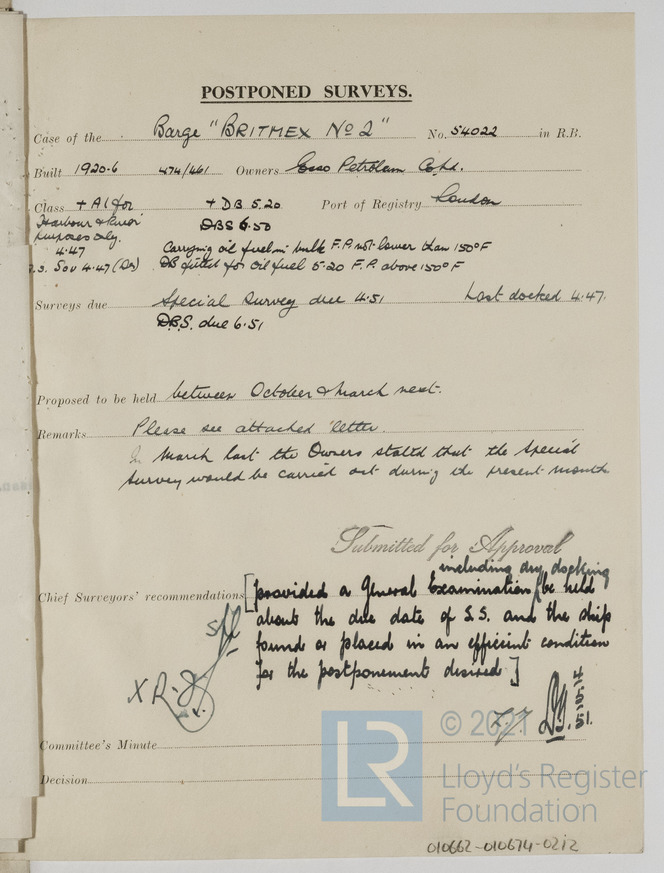 POSTPONED SURVEYS.
Case of the Barge "BRITMEX No 2" No. 54022 in R.B.
Built 1920.6 474/461 Owners Esso Petroleum Co Ltd.
Class + A1 for + DB 5.20 Port of Registry London
Harbour & River DBS 6.50
purposes only.
4.47 Carrying oil fuel in bulk F.P. not lower than 150°F
S.S. 4.47 (Dr) DB fitted for oil fuel 5.20 F.P. above 150°F
Surveys due Special Survey due 4.51 Last docked 4.47.
D.B.S. due 6.51
Proposed to be held between October & March next.
Remarks Please see attached letter.
In March last the Owners stated that the Special
Survey would be carried out during the present month
Submitted for Approval
including dry docking
Chief Surveyors' recommendations [provided a General Examination be held
about the due date of S.S. and the ship
found or placed in an efficient condition
for the postponement desired]
4.5.51.
Committee's Minute
Decision
LR
© 2021
Lloyd's Register
Foundation
010662-010674-0212